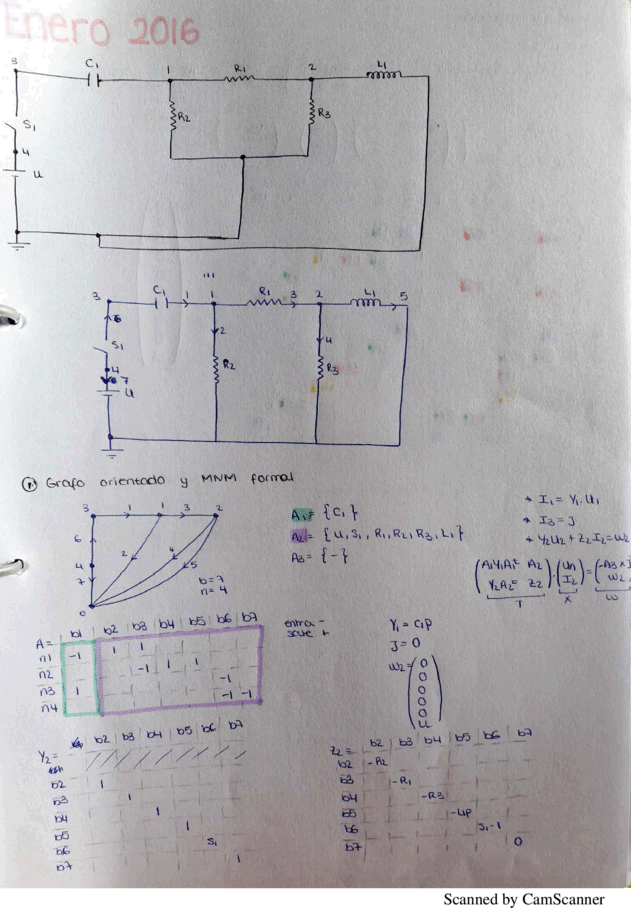 Enero 2016
3 C1 1 R1 2 L1
R2 R3
S1
4
u
3 C1 1 1 R1 3 2 L1 5
6 2 4
S1 R2 R3
4
7
u
Grafo orientado y MNM formal
3 1 1 3 2
6 2 4 5
4
7
0
b=7
n=4
A1 = {C1}
A2 = {u, S1, R1, R2, R3, L1}
A3 = {-}
* I1 = Y1·U1
* I3 = J
* Y2U2 + Z2I2 = W2
(A1Y1A1ᵗ A2 / Y2A2ᵗ Z2) · (Un / I2) = (-A3 × J / W2)
T X W
A= b1 b2 b3 b4 b5 b6 b7
n1 -1 1 1
n2 -1 1 1
n3 1 -1
n4 -1 -1
entra -
sale +
Y1 = C1P
J = 0
W2 = (0 0 0 0 0 u)
Y2= b2 b3 b4 b5 b6 b7
b2 1
b3 1
b4 1
b5 1
b6 S1
b7 1
Z2= b2 b3 b4 b5 b6 b7
b2 -R2
b3 -R1
b4 -R3
b5 -LP
b6 S1-1
b7 0
Scanned by CamScanner